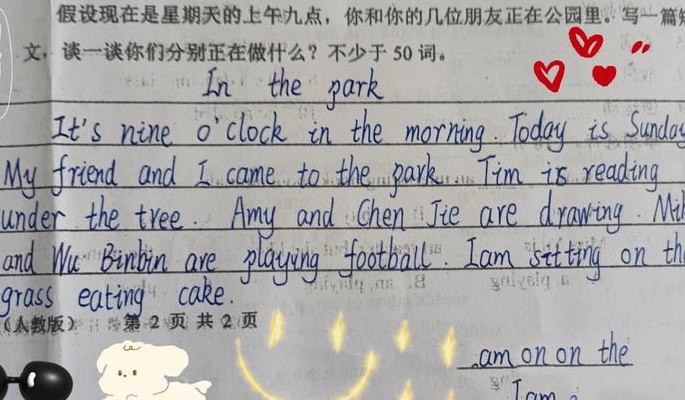 假设现在是星期天的上午九点，你和你的几位朋友正在公园里。写一篇
文，谈一谈你们分别正在做什么？不少于 50 词。
In the park
It's nine o'clock in the morning. Today is Sunday
My friend and I came to the park. Tim is reading
under the tree. Amy and Chen Jie are drawing.
and Wu Binbin are playing football. I am sitting on
grass eating cake.
（人教版） 第 2 页 共 2 页
am on on the
I am